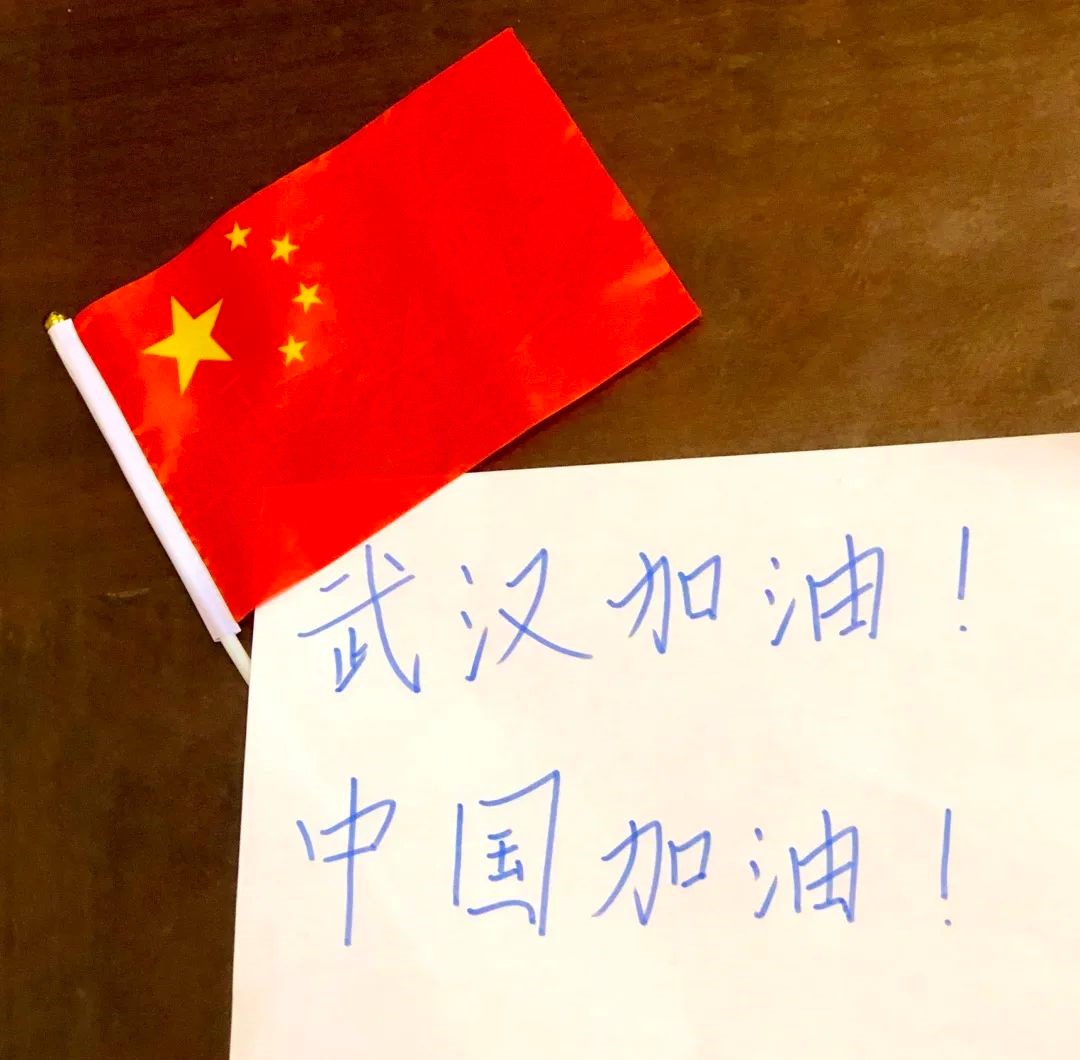 武汉加油!
中国加油!